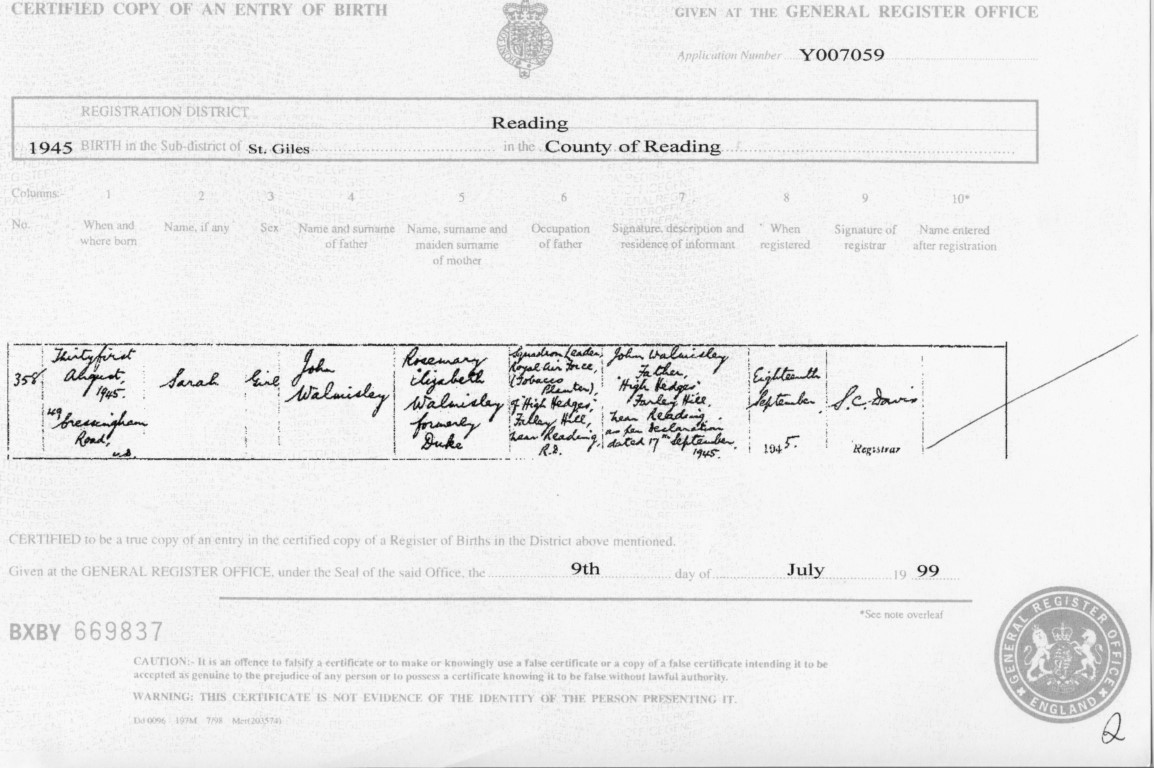 CERTIFIED COPY OF AN ENTRY OF BIRTH
GIVEN AT THE GENERAL REGISTER OFFICE
Application Number Y007059
REGISTRATION DISTRICT
Reading
1945 BIRTH in the Sub-district of St. Giles in the County of Reading
Columns:- 1 2 3 4 5 6 7 8 9 10*
No. When and where born
Name, if any
Sex
Name and surname of father
Name, surname and maiden surname of mother
Occupation of father
Signature, description and residence of informant
When registered
Signature of registrar
Name entered after registration
358
Thirtyfirst
August,
1945.
Cressingham
Road,
Sarah
Girl
John
Walmisley
Rosemary
Elizabeth
Walmisley
formerly
Duke
Squadron Leader,
Royal Air Force,
(Tobacco
Planter),
of High Hedges,
Farley Hill,
near Reading,
R.D.
John Walmisley
Father,
"High Hedges"
Farley Hill,
near Reading.
as per declaration
dated 17th September,
1945.
Eighteenth
September,
1945.
S.C. Davis
Registrar
CERTIFIED to be a true copy of an entry in the certified copy of a Register of Births in the District above mentioned.
Given at the GENERAL REGISTER OFFICE, under the Seal of the said Office, the 9th day of July 19 99
*See note overleaf
BXBY 669837
CAUTION:- It is an offence to falsify a certificate or to make or knowingly use a false certificate or a copy of a false certificate intending it to be
accepted as genuine to the prejudice of any person or to possess a certificate knowing it to be false without lawful authority.
WARNING: THIS CERTIFICATE IS NOT EVIDENCE OF THE IDENTITY OF THE PERSON PRESENTING IT.
GENERAL REGISTER OFFICE
ENGLAND
2